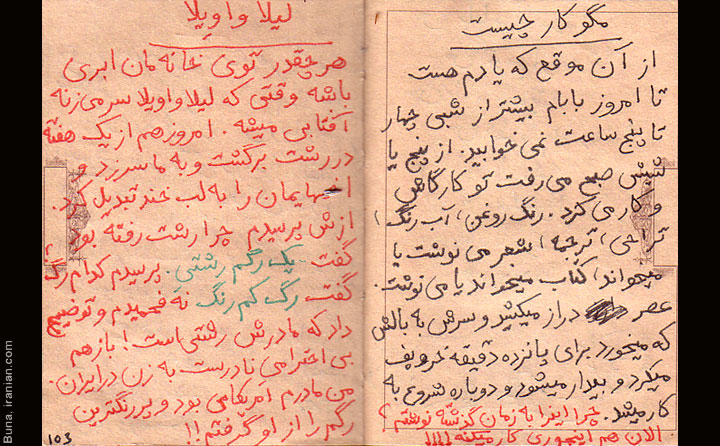 مگو کار چیست
از آن موقع که یادم هست
تا امروز بابام بیشتر از شبی چهار
تا پنج ساعت نمی خوابید. از پنج یا
شیش صبح می رفت تو کارگاهش
و کار می کرد. رنگ روغن، آب رنگ،
تراحی، ترجمه، شعر می نوشت یا
میخواند، کتاب میخواند یا می نوشت.
عصر دراز میکشید و سرش به بالش
که میخورد برای پانزده دقیقه خروپف
میکرد و بیدار میشود و دوباره شروع به
کار میشد. چرا اینرا به زمان گزشته نوشتم؟
الان هم اینجوری کار میکنه!!!!
لیلا واویلا
هر چقدر توی خانه مان ابری
باشه وقتی که لیلا واویلا سر می زنه
آفتابی میشه. امروز هم از یک هفته
در رشت برگشت و به ما سر زد و
اخمهایمان را به لب خند تبدیل کرد.
ازش پرسیدم چرا رشت رفته بود؟
گفت یک رگم رشتی. پرسیدم کدام رگ
گفت رگ کم رنگ نه فهمیدم و توضیح
داد که مادرش رشتی است! باز هم
بی احترامی نادرست به زن در ایران.
من مادرم آمریکایی بود و پررنگترین
رگم را از او گرفتم!!
103
Buna, iranian.com